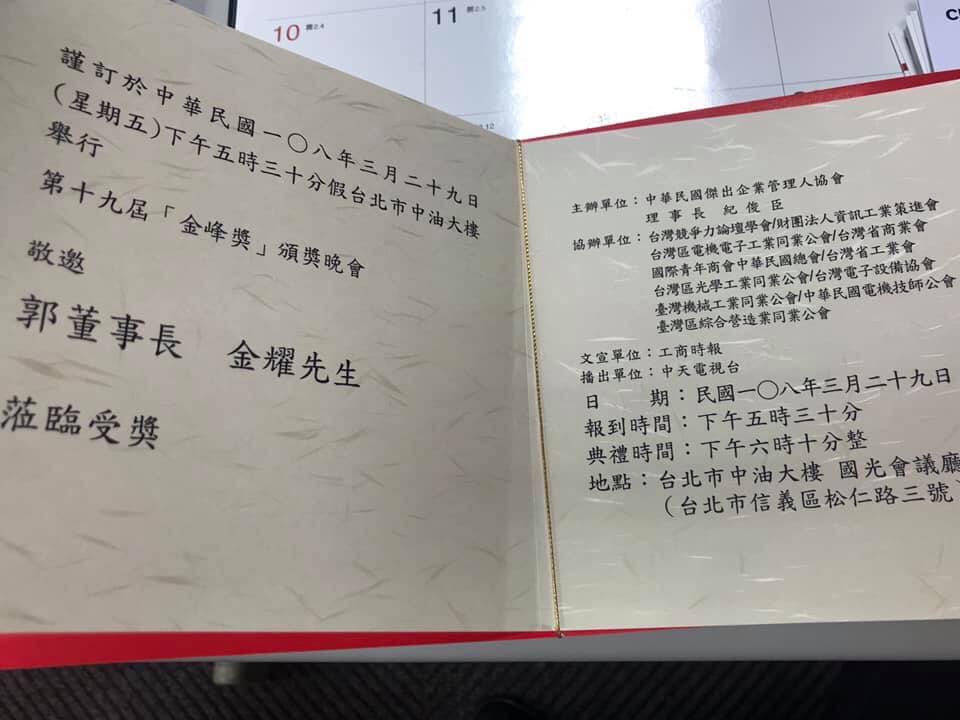 10 閏2.4
11 閏2.5
2.12
謹訂於中華民國一〇八年三月二十九日
(星期五)下午五時三十分假台北市中油大樓
舉行
第十九屆「金峰獎」頒獎晚會
敬邀
郭董事長 金耀先生
蒞臨受獎
主辦單位：中華民國傑出企業管理人協會
理事長 紀俊臣
協辦單位：台灣競爭力論壇學會/財團法人資訊工業策進會
台灣區電機電子工業同業公會/台灣省商業會
國際青年商會中華民國總會/台灣省工業會
台灣區光學工業同業公會/台灣電子設備協會
臺灣機械工業同業公會/中華民國電機技師公會
臺灣區綜合營造業同業公會
文宣單位：工商時報
播出單位：中天電視台
日 期：民國一〇八年三月二十九日
報到時間：下午五時三十分
典禮時間：下午六時十分整
地點：台北市中油大樓 國光會議廳
(台北市信義區松仁路三號)